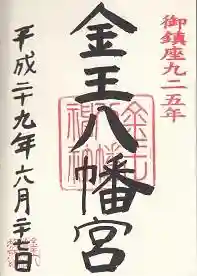 御鎮座九二五年
金王八幡宮
平成二十九年六月二十七日